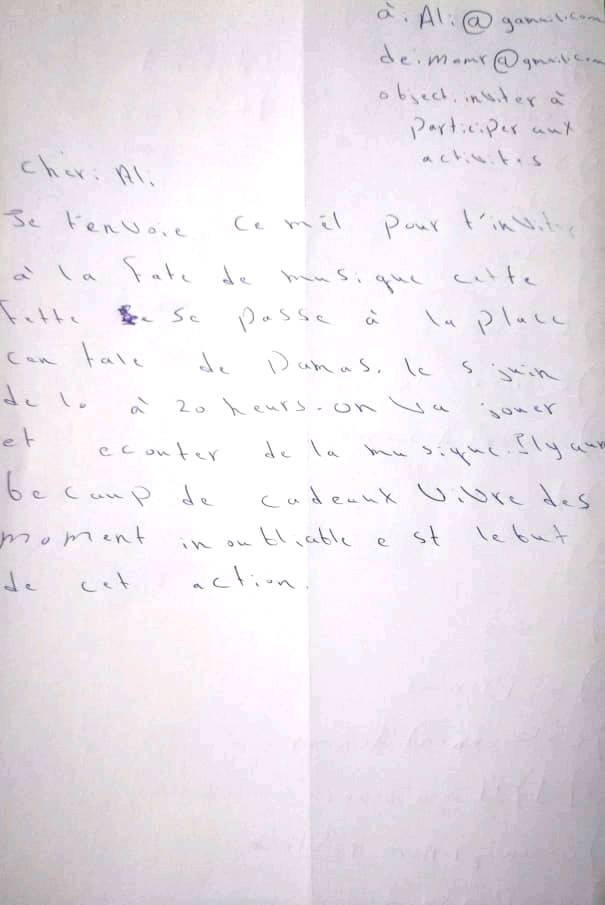 à: Ali@gamail.com
de: momr@gmail.com
object: inviter à
participer aux
activites
cher: Ali
Je t'envoie ce mél pour t'inviter
à la fate de musique cette
fette se passe à la place
centale de Damas. le 5 juin
de 10 à 20 heurs. on va jouer
et econter de la musique. Il y aura
becaup de cadeaux Vivre des
moment inoubliable e st le but
de cet action.